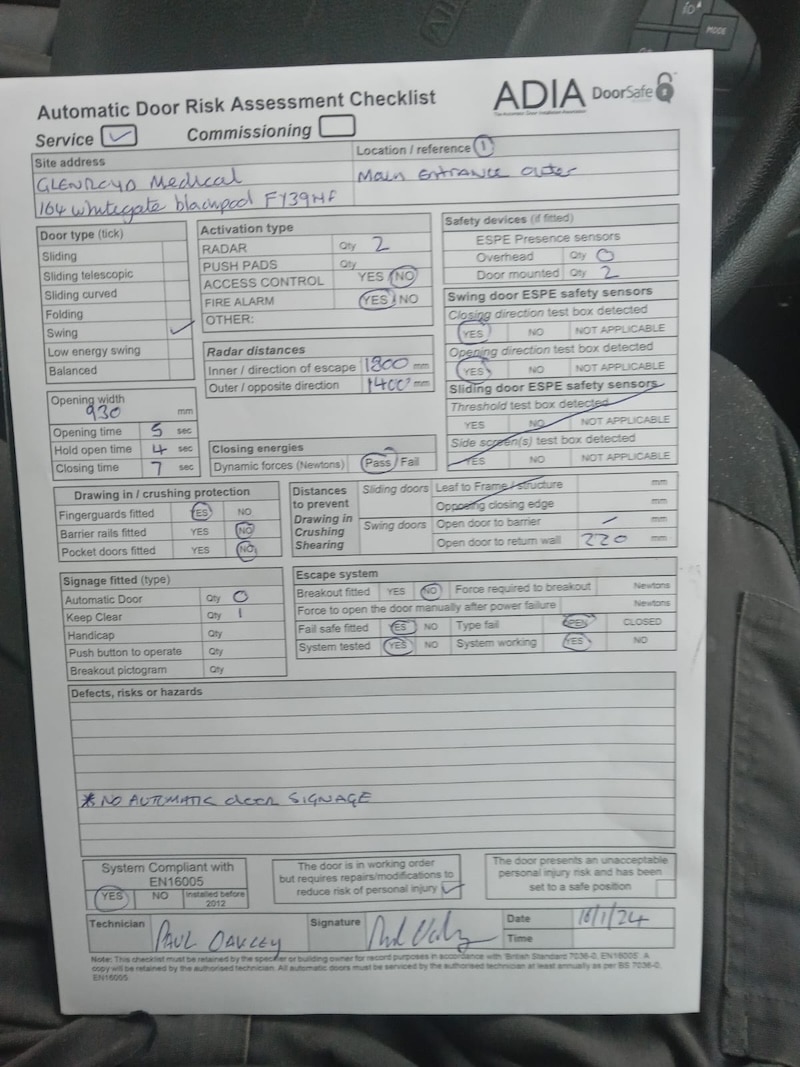 MODE
Automatic Door Risk Assessment Checklist
ADIA
DoorSafe
Service ✓ Commissioning
Site address
GLENROYD Medical
164 whitegate blackpool FY39HF
Location / reference 1
Main Entrance outer
Door type (tick)
Sliding
Sliding telescopic
Sliding curved
Folding
Swing ✓
Low energy swing
Balanced
Activation type
RADAR Qty 2
PUSH PADS Qty
ACCESS CONTROL YES NO
FIRE ALARM YES NO
OTHER:
Safety devices (if fitted)
ESPE Presence sensors
Overhead Qty 0
Door mounted Qty 2
Swing door ESPE safety sensors
Closing direction test box detected
YES NO NOT APPLICABLE
Opening direction test box detected
YES NO NOT APPLICABLE
Sliding door ESPE safety sensors
Threshold test box detected
YES NO NOT APPLICABLE
Side screen(s) test box detected
YES NO NOT APPLICABLE
Radar distances
Inner / direction of escape 1800 mm
Outer / opposite direction 1400 mm
Opening width
930 mm
Opening time 5 sec
Hold open time 4 sec
Closing time 7 sec
Closing energies
Dynamic forces (Newtons) Pass Fail
Drawing in / crushing protection
Fingerguards fitted YES NO
Barrier rails fitted YES NO
Pocket doors fitted YES NO
Distances
to prevent
Drawing in
Crushing
Shearing
Sliding doors Leaf to Frame / structure mm
Opposing closing edge mm
Swing doors Open door to barrier / mm
Open door to return wall 220 mm
Signage fitted (type)
Automatic Door Qty 0
Keep Clear Qty 1
Handicap Qty
Push button to operate Qty
Breakout pictogram Qty
Escape system
Breakout fitted YES NO Force required to breakout Newtons
Force to open the door manually after power failure Newtons
Fail safe fitted YES NO Type fail OPEN CLOSED
System tested YES NO System working YES NO
Defects, risks or hazards
* NO AUTOMATIC door SIGNAGE
System Compliant with
EN16005
YES NO Installed before
2012
The door is in working order
but requires repairs/modifications to
reduce risk of personal injury ✓
The door presents an unacceptable
personal injury risk and has been
set to a safe position
Technician PAUL OAKLEY Signature Date 16/1/24
Time
Note: This checklist must be retained by the specifier or building owner for record purposes in accordance with 'British Standard 7036-0, EN16005'. A
copy will be retained by the authorised technician. All automatic doors must be serviced by the authorised technician at least annually as per BS 7036-0,
EN16005